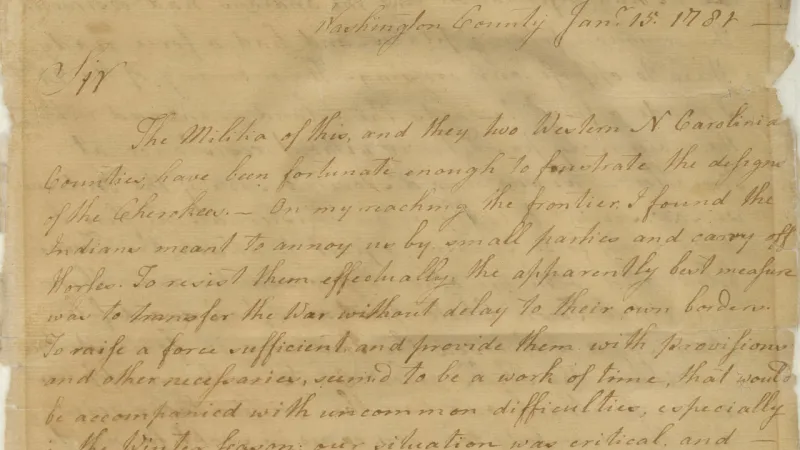 Washington County Jany. 15. 1781 —
Sir
The Militia of this, and they two Western N Carolinia
Counties, have been fortunate enough to frustrate the designs
of the Cherokees. — On my reaching the frontier, I found the
Indians meant to annoy us by small parties and carry off
Horses. To resist them effectually, the apparently best measure
was to transfer the War without delay to their own borders.
To raise a force sufficient, and provide them with provisions
and other necessaries, seemed to be a work of time, that would
be accompanied with uncommon difficulties, especially
in the Winter season: our situation was critical, and —